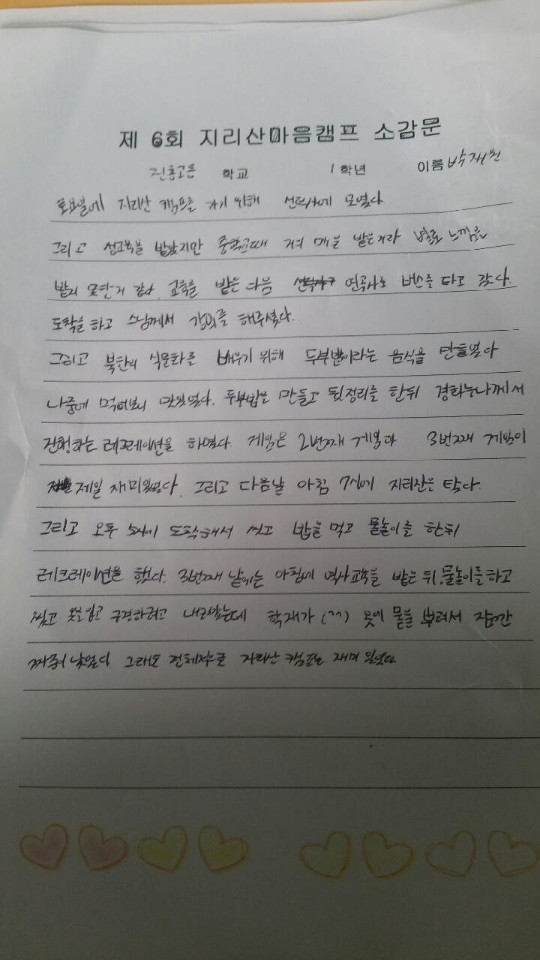 제 6회 지리산마음캠프 소감문
진흥고등 학교 1 학년 이름 박재현
토요일에 지리산 캠프를 가기 위해 모였다
그리고 성교육을 받았지만 중학교때 겨우 받은거라 별로 느낌을
받지 못한거 같다. 교육을 받은 다음 연곡사로 버스를 타고 갔다.
도착을 하고 스님께서 강의를 해주셨다.
그리고 북한의 식문화를 배우기 위해 두부밥이라는 음식을 만들었다
나중에 먹어보니 맛있었다. 두부밥을 만들고 뒷정리를 한뒤 경화누나께서
진행하는 레크레이션을 하였다. 게임은 2번째 게임과 3번째 게임이
제일 재미있었다. 그리고 다음날 아침 7시에 지리산을 탔다.
그리고 오후 5시에 도착해서 씻고 밥을 먹고 물놀이를 한뒤
레크레이션을 했다. 3번째 날에는 아침에 역사교육을 받은 뒤, 물놀이를 하고
씻고 옷을입고 구경하려고 내려갔는데 학재가 (^^) 옷에 물을 뿌려서 잠깐
짜증이 났었다 그래도 전체적으로 지리산 캠프는 재미 있었다